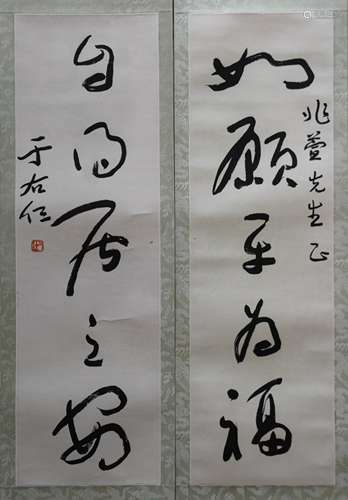 兆萱先生正
如願平為福
自得居之安
于右任